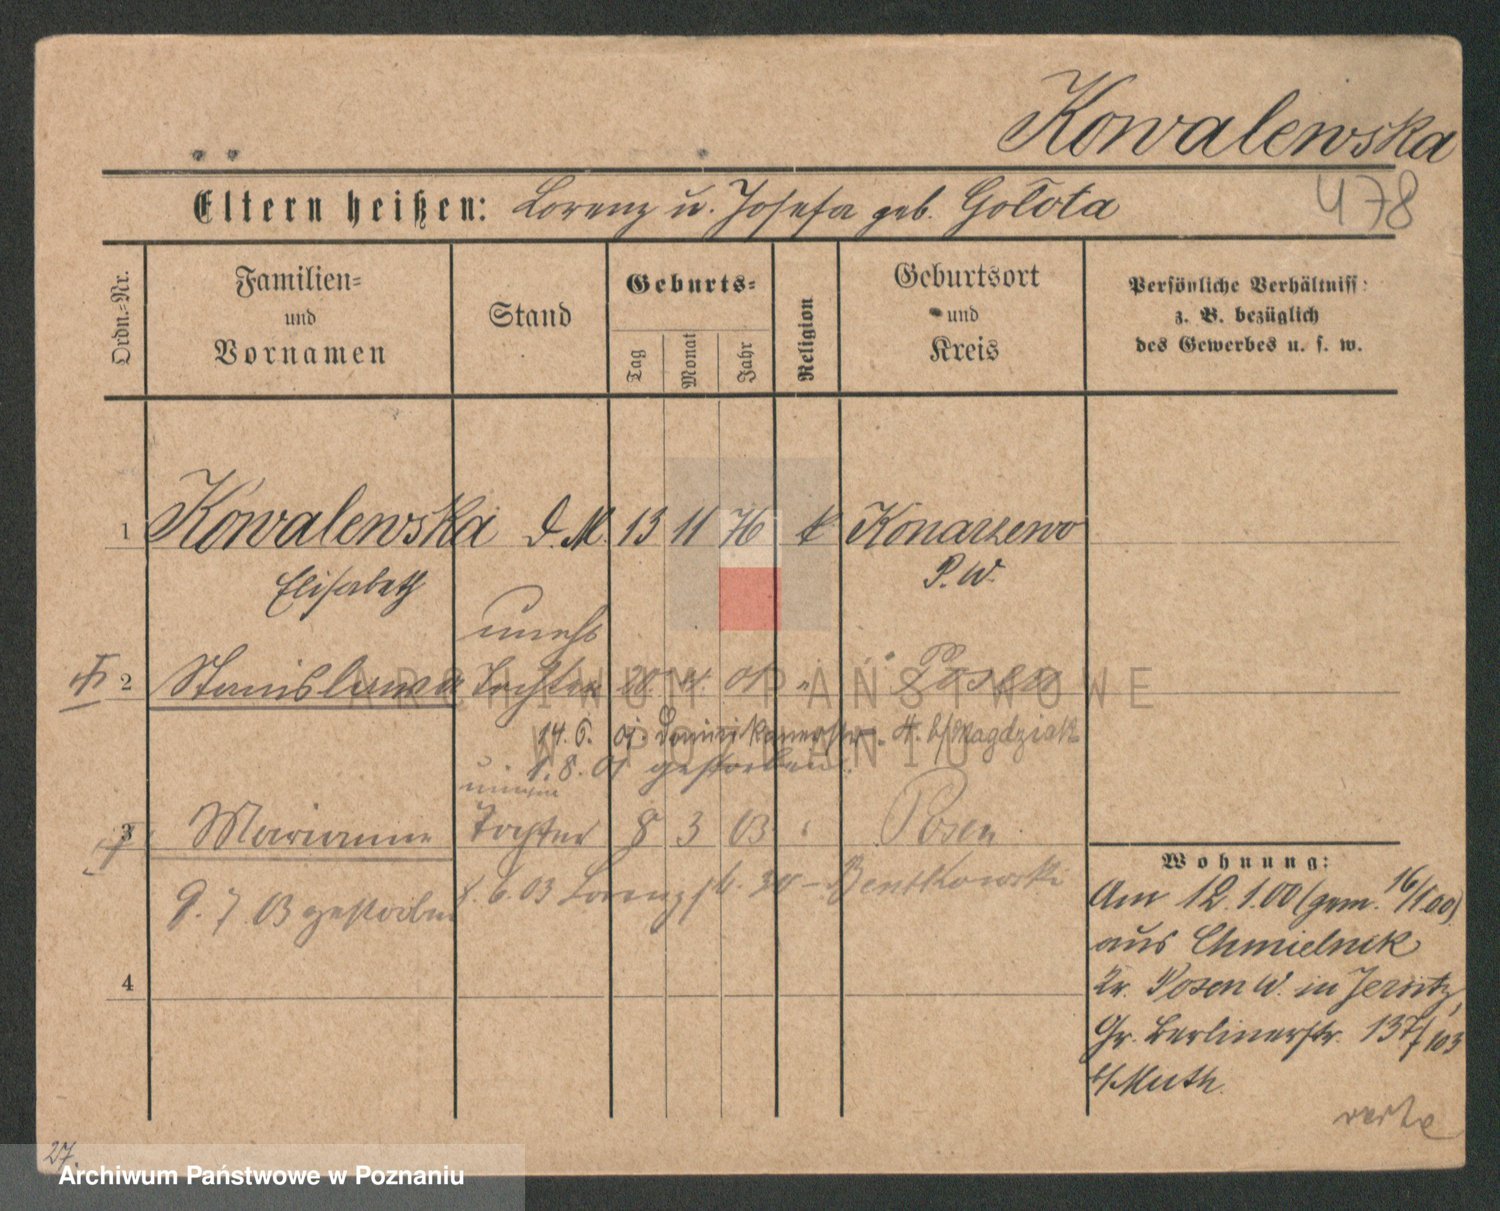 Kowalewska
Eltern heißen: Lorenz u. Josefa geb. Gołota
478
Ordn.-Nr.
Familien-
und
Vornamen
Stand
Geburts-
Tag
Monat
Jahr
Religion
Geburtsort
und
Kreis
Persönliche Verhältniss:
z. B. bezüglich
des Gewerbes u. s. w.
1 Kowalewska d. M. 13 11 76 k Konarzewo
Elisabeth P. W.
unehl
2 Stanislawa Tochter 20. 4. 01 " Posen
14. 6. 01. Dominikanerstr. 4. b/Magdziak
1. 8. 01 gestorben.
3 Marianne Tochter 8 3 03 " Posen
6.03 Lorenzstr. 30 - Bentkowski
9. 7. 03 gestorben
4
Wohnung:
Am 12.1.00 (gem. 16/1.00)
aus Chmielnik
Kr. Posen W. in Jersitz,
Gr. Berlinerstr. 137/103
b/Muth.
verte
27.
ARCHIWUM PAŃSTWOWE
W POZNANIU
Archiwum Państwowe w Poznaniu